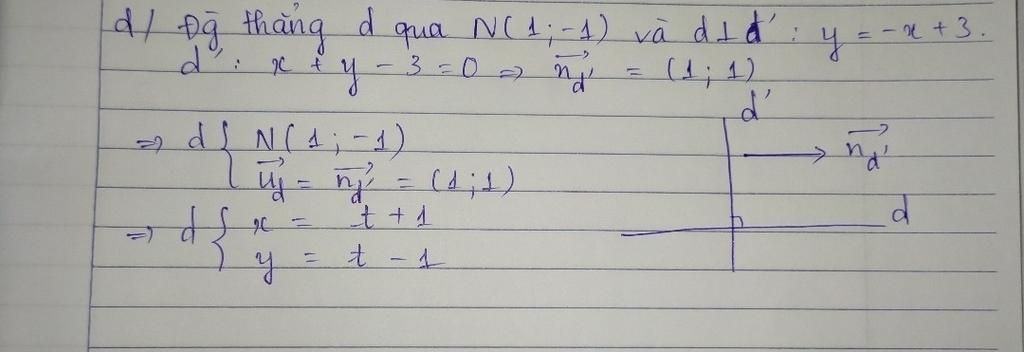 d/ Đg̃ thẳng d qua N(1;-1) và d⊥d' : y = -x + 3.
d' : x + y - 3 = 0 => n⃗d' = (1;1)
d'
=> d { N(1;-1)
n⃗d'
u⃗d = n⃗d' = (1;1)
d
=> d { x = t + 1
y = t - 1